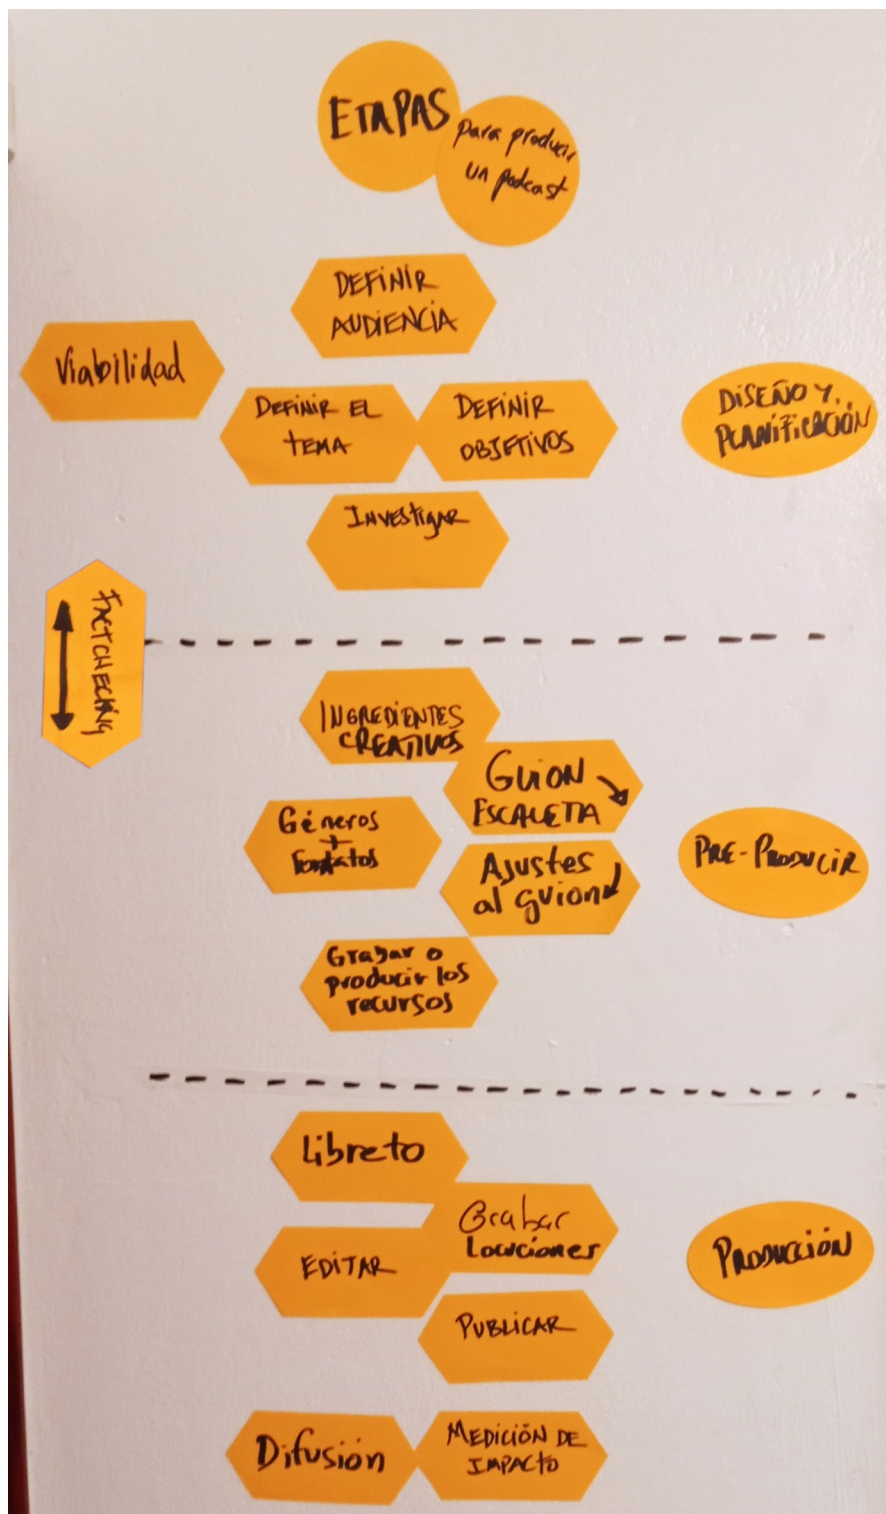 ETAPAS
para producir
un podcast
DEFINIR
AUDIENCIA
Viabilidad
DEFINIR EL
TEMA
DEFINIR
OBJETIVOS
DISEÑO Y
PLANIFICACIÓN
INVESTIGAR
FACTCHECKING
INGREDIENTES
CREATIVOS
GUION
ESCALETA
Géneros
+
Formatos
AJUSTES
al guion
PRE-PRODUCIR
Grabar o
producir los
recursos
Libreto
Grabar
Locuciones
EDITAR
PRODUCCIÓN
PUBLICAR
Difusión
MEDICIÓN DE
IMPACTO